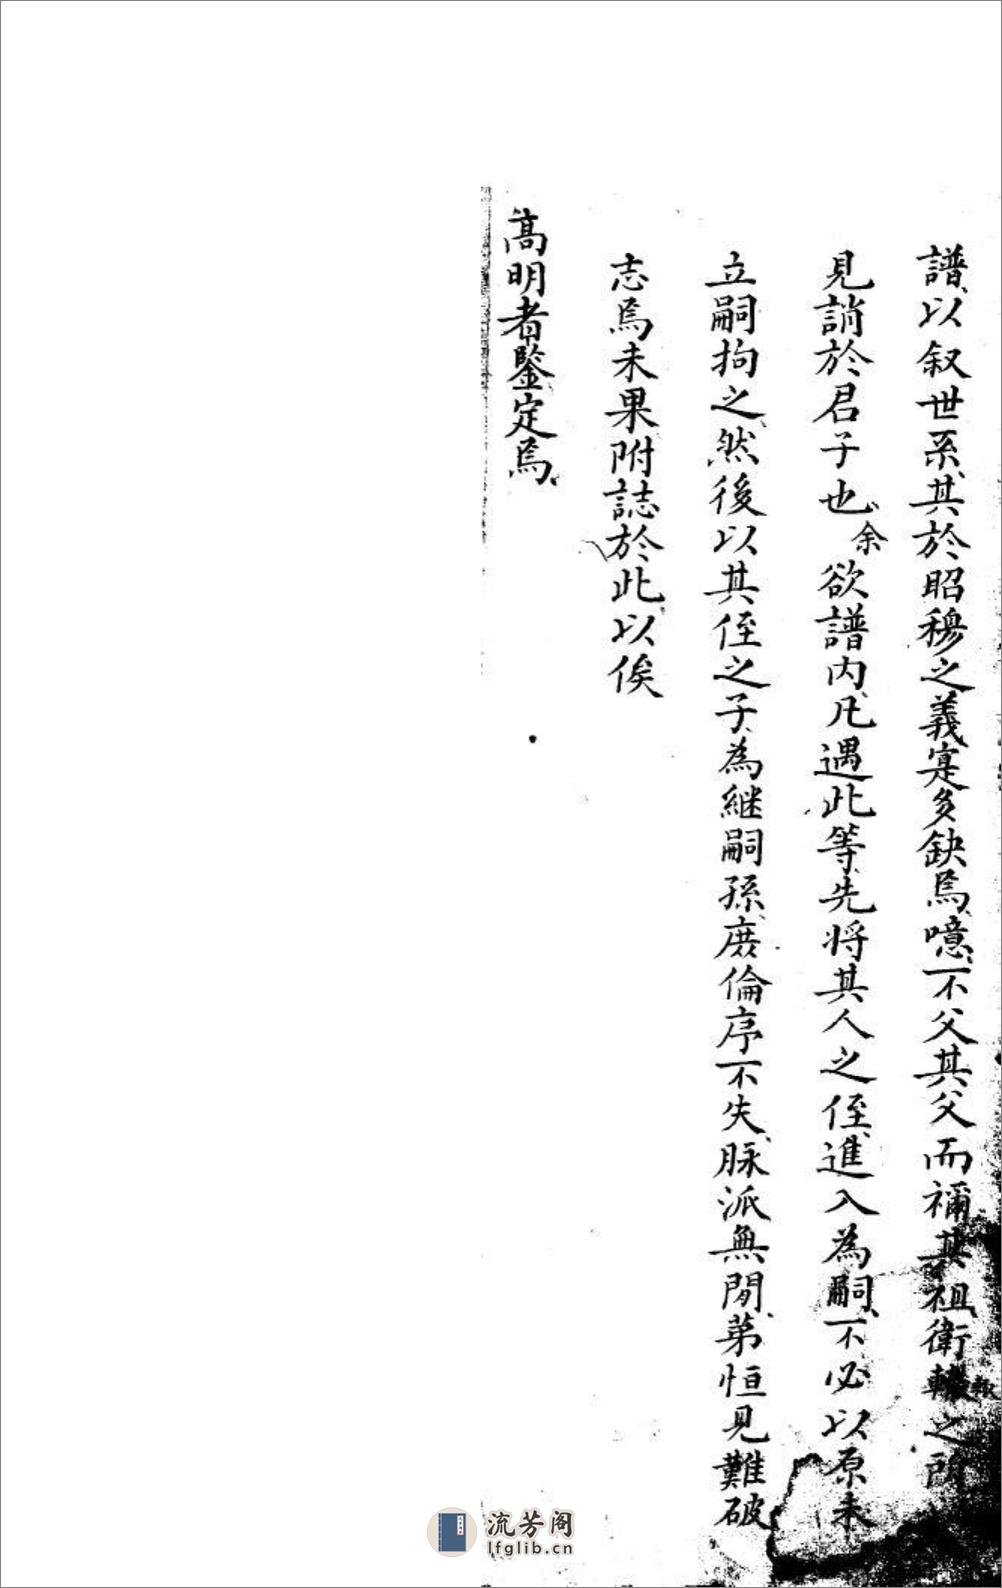 譜以叙世系其於昭穆之義寔多缺焉噫不父其父而禰其祖衛輙之所
見誚於君子也余欲譜内凡遇此等先将其人之侄進入為嗣不必以原未
立嗣拘之然後以其侄之子為継嗣孫庻倫序不失脉派無間第恒見難破
志焉未果附誌於此以俟
髙明者鑒定焉
流芳阁
lfglib.cn